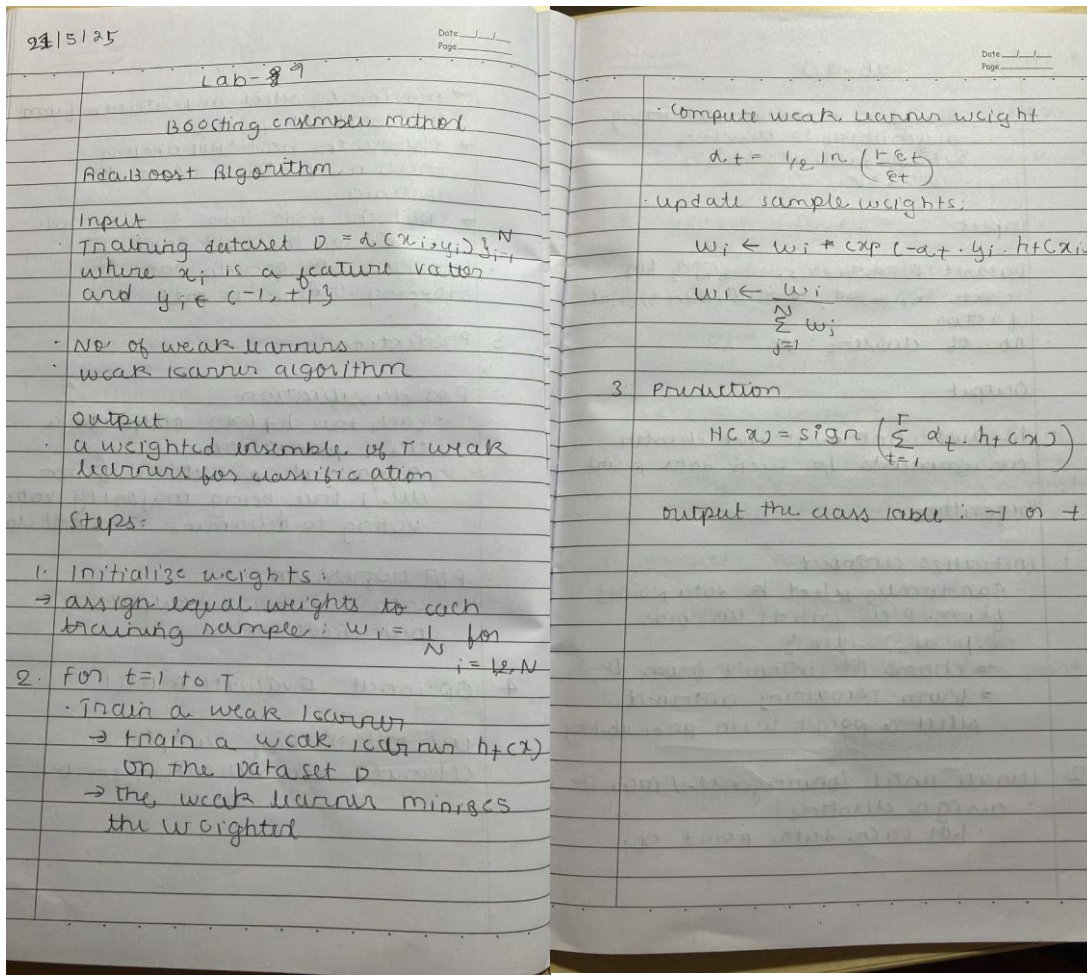 21/5/25
Date __/__/__
Page ______
Lab-9
Boosting ensembler method
AdaBoost Algorithm
Input
· Training dataset D = {(xi, yi)}ᴺᵢ₌₁
where xi is a feature vattor
and yi ∈ {-1, +1}
· No of weak learners
· weak learner algorithm
Output
· a weighted ensemble of T weak
learners for classification
Steps:
1. Initialize weights:
→ assign equal weights to each
training sample: wi = 1/N for
i = 1,2,N
2. For t=1 to T
· Train a weak learner
→ train a weak learner ht(x)
on the dataset D
→ The weak learner minizes
the weighted
Date __/__/__
Page ______
· Compute weak learner weight
αt = 1/2 ln (1-εt/εt)
· update sample weights:
wi ← wi * exp (-αt · yi · ht(xi
wi ← wi / Σᴺⱼ₌₁ wj
3. Prediction
H(x) = sign (Σᵀₜ₌₁ αt · ht(x))
output the class lable : -1 or +